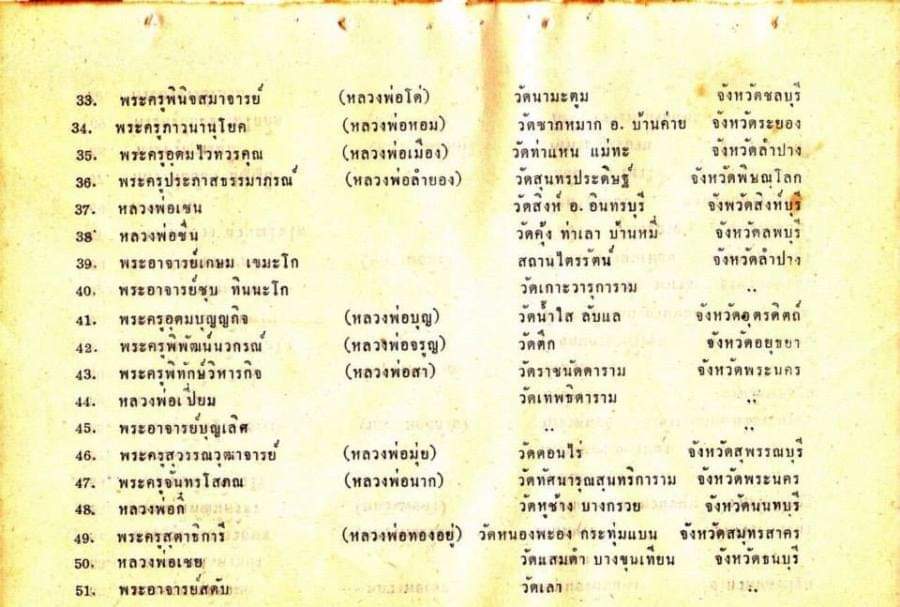 33. พระครูพินิจสมาจารย์ (หลวงพ่อโด่) วัดนามะตูม จังหวัดชลบุรี
34. พระครูภาวนานุโยค (หลวงพ่อหอม) วัดซากหมาก อ. บ้านค่าย จังหวัดระยอง
35. พระครูอุดมไวทวรคุณ (หลวงพ่อเมือง) วัดท่าแหน แม่ทะ จังหวัดลำปาง
36. พระครูประภาสธรรมาภรณ์ (หลวงพ่อลำยอง) วัดสุนทรประดิษฐ์ จังหวัดพิษณุโลก
37. หลวงพ่อเชน วัดสิงห์ อ. อินทรบุรี จังหวัดสิงห์บุรี
38 หลวงพ่อชื่น วัดคุ้ง ท่าเลา บ้านหมี่ จังหวัดลพบุรี
39. พระอาจารย์เกษม เขมะโก สถานไตรรัตน์ จังหวัดลำปาง
40. พระอาจารย์ชุบ ทินนะโก วัดเกาะวารุการาม ,,
41. พระครูอุดมบุญญกิจ (หลวงพ่อบุญ) วัดน้ำใส ลับแล จังหวัดอุตรดิตถ์
42. พระครูพิพัฒน์นวกรณ์ (หลวงพ่อจรูญ) วัดตึก จังหวัดอยุธยา
43. พระครูพิทักษ์วิหารกิจ (หลวงพ่อสา) วัดราชนัดดาราม จังหวัดพระนคร
44. หลวงพ่อเปี่ยม วัดเทพธิดาราม ,,
45. พระอาจารย์บุญเลิศ ,, ,,
46. พระครูสุวรรณวุฒาจารย์ (หลวงพ่อมุ่ย) วัดดอนไร่ จังหวัดสุพรรณบุรี
47. พระครูจันทรโสภณ (หลวงพ่อนาก) วัดทัศนารุณสุนทริการาม จังหวัดพระนคร
48. หลวงพ่อกี๋ วัดหูช้าง บางกรวย จังหวัดนนทบุรี
49. พระครูสุตาธิการี (หลวงพ่อทองอยู่) วัดหนองพะอง กระทุ่มแบน จังหวัดสมุทรสาคร
50. หลวงพ่อเชย วัดแสมดำ บางขุนเทียน จังหวัดธนบุรี
51. พระอาจารย์สดับ วัดเลา ,,